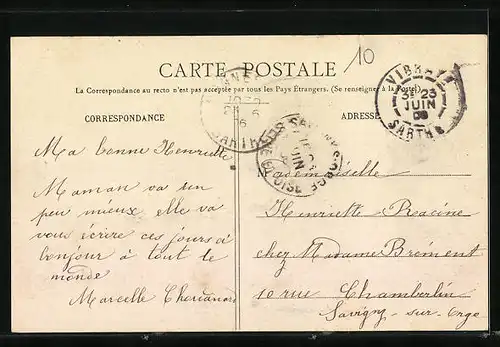 10
CARTE POSTALE
La Correspondance au recto n'est pas acceptée par tous les Pays Étrangers. (Se renseigner à la Poste)
CORRESPONDANCE
ADRESSE
VIBRAYE
3E 23
JUIN
08
SARTHE
Ma bonne Henriette
Maman va un
peu mieux elle va
vous écrire ces jours à
bonjour à tout le
monde
Marcelle
Mademoiselle
Henriette Racine
chez Madame Brément
10 rue Chamberlin
Savigny-sur-Orge